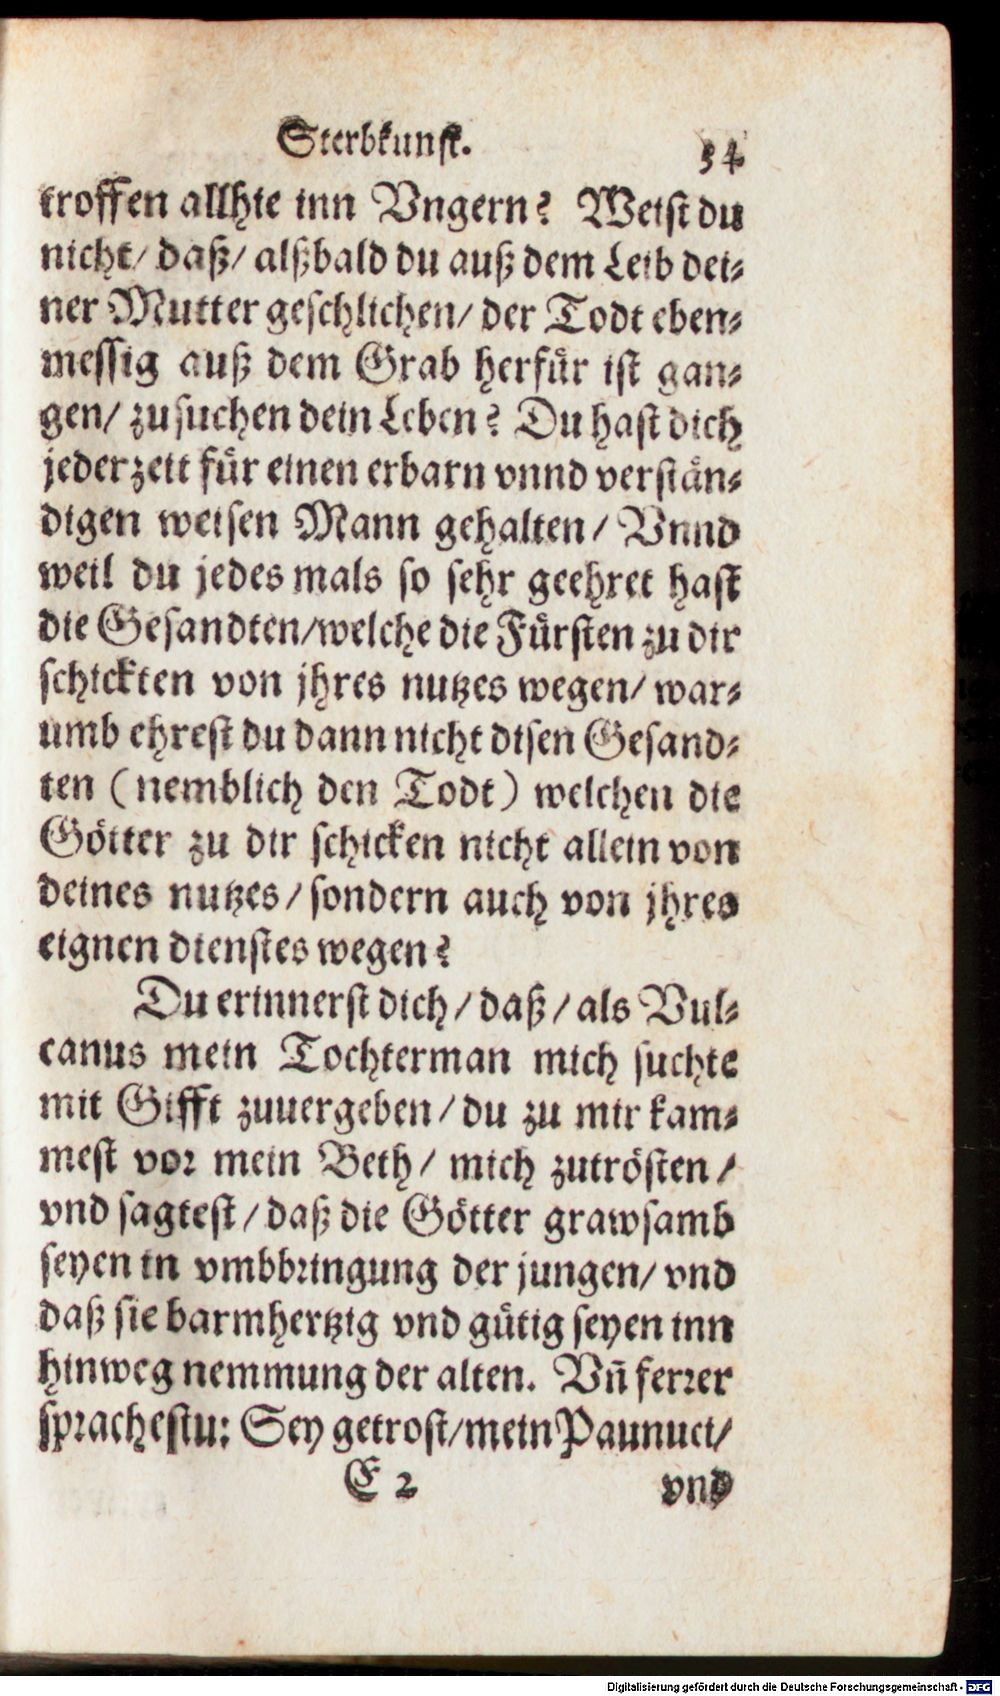 Sterbkunst. 34
troffen allhie inn Vngern? Weist du
nicht/ daß/ alßbald du auß dem Leib dei-
ner Mutter geschlichen/ der Todt eben-
messig auß dem Grab herfür ist gan-
gen/ zu suchen dein Leben? Du hast dich
jederzeit für einen erbarn vnnd verstän-
digen weisen Mann gehalten/ Vnnd
weil du jedes mals so sehr geehret hast
die Gesandten/welche die Fürsten zu dir
schickten von jhres nutzes wegen/ war-
umb ehrest du dann nicht disen Gesand-
ten (nemblich den Todt) welchen die
Götter zu dir schicken nicht allein von
deines nutzes/ sondern auch von jhres
eignen dienstes wegen?
Du erinnerst dich/ daß/ als Vul-
canus mein Tochterman mich suchte
mit Gifft zuuergeben/ du zu mir kam-
mest vor mein Beth/ mich zutrösten/
vnd sagtest/ daß die Götter grawsamb
seyen in vmbbringung der jungen/ vnd
daß sie barmhertzig vnd gütig seyen inn
hinweg nemmung der alten. Vñ ferrer
sprachestu: Sey getrost/mein Paunuci/
E 2 vnd
Digitalisierung gefördert durch die Deutsche Forschungsgemeinschaft - DFG